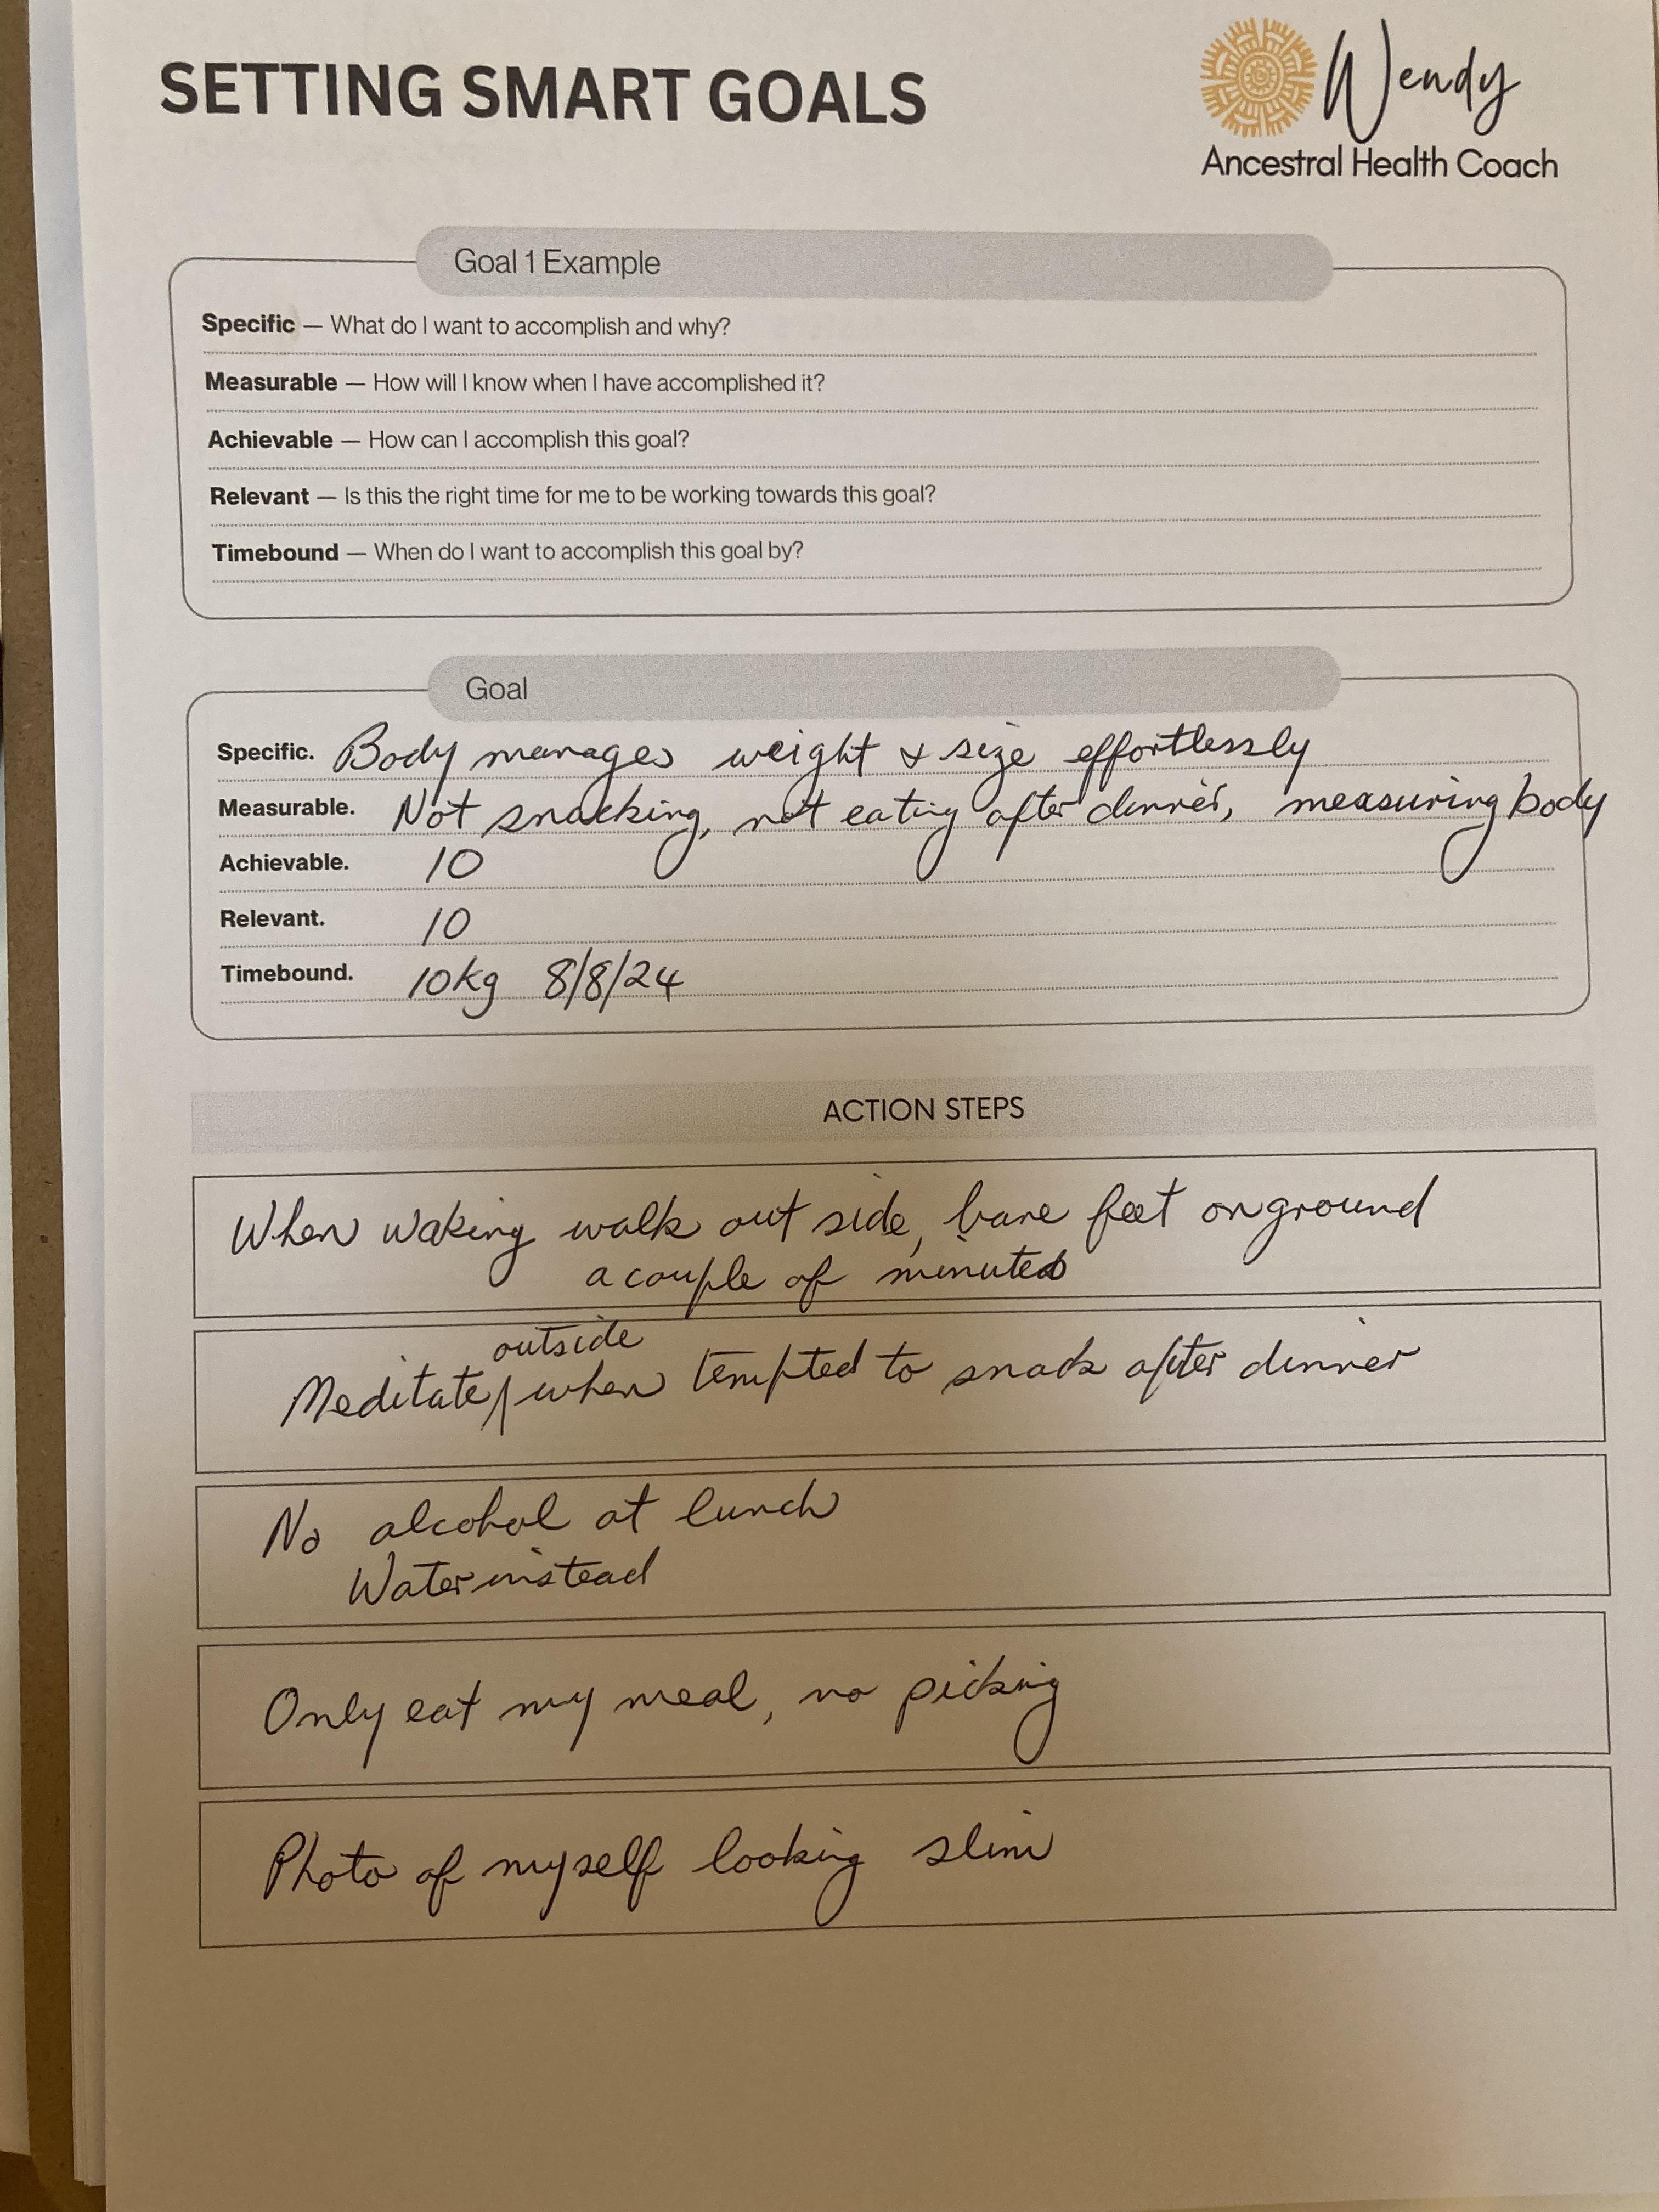 SETTING SMART GOALS
Wendy
Ancestral Health Coach
Goal 1 Example
Specific — What do I want to accomplish and why?
Measurable — How will I know when I have accomplished it?
Achievable — How can I accomplish this goal?
Relevant — Is this the right time for me to be working towards this goal?
Timebound — When do I want to accomplish this goal by?
Goal
Specific. Body manages weight & size effortlessly
Measurable. Not snacking, not eating after dinner, measuring body
Achievable. 10
Relevant. 10
Timebound. 10kg 8/8/24
ACTION STEPS
When waking walk out side, bare feet on ground
a couple of minutes
outside
Meditate / when tempted to snack after dinner
No alcohol at lunch
Water instead
Only eat my meal, no picking
Photo of myself looking slim